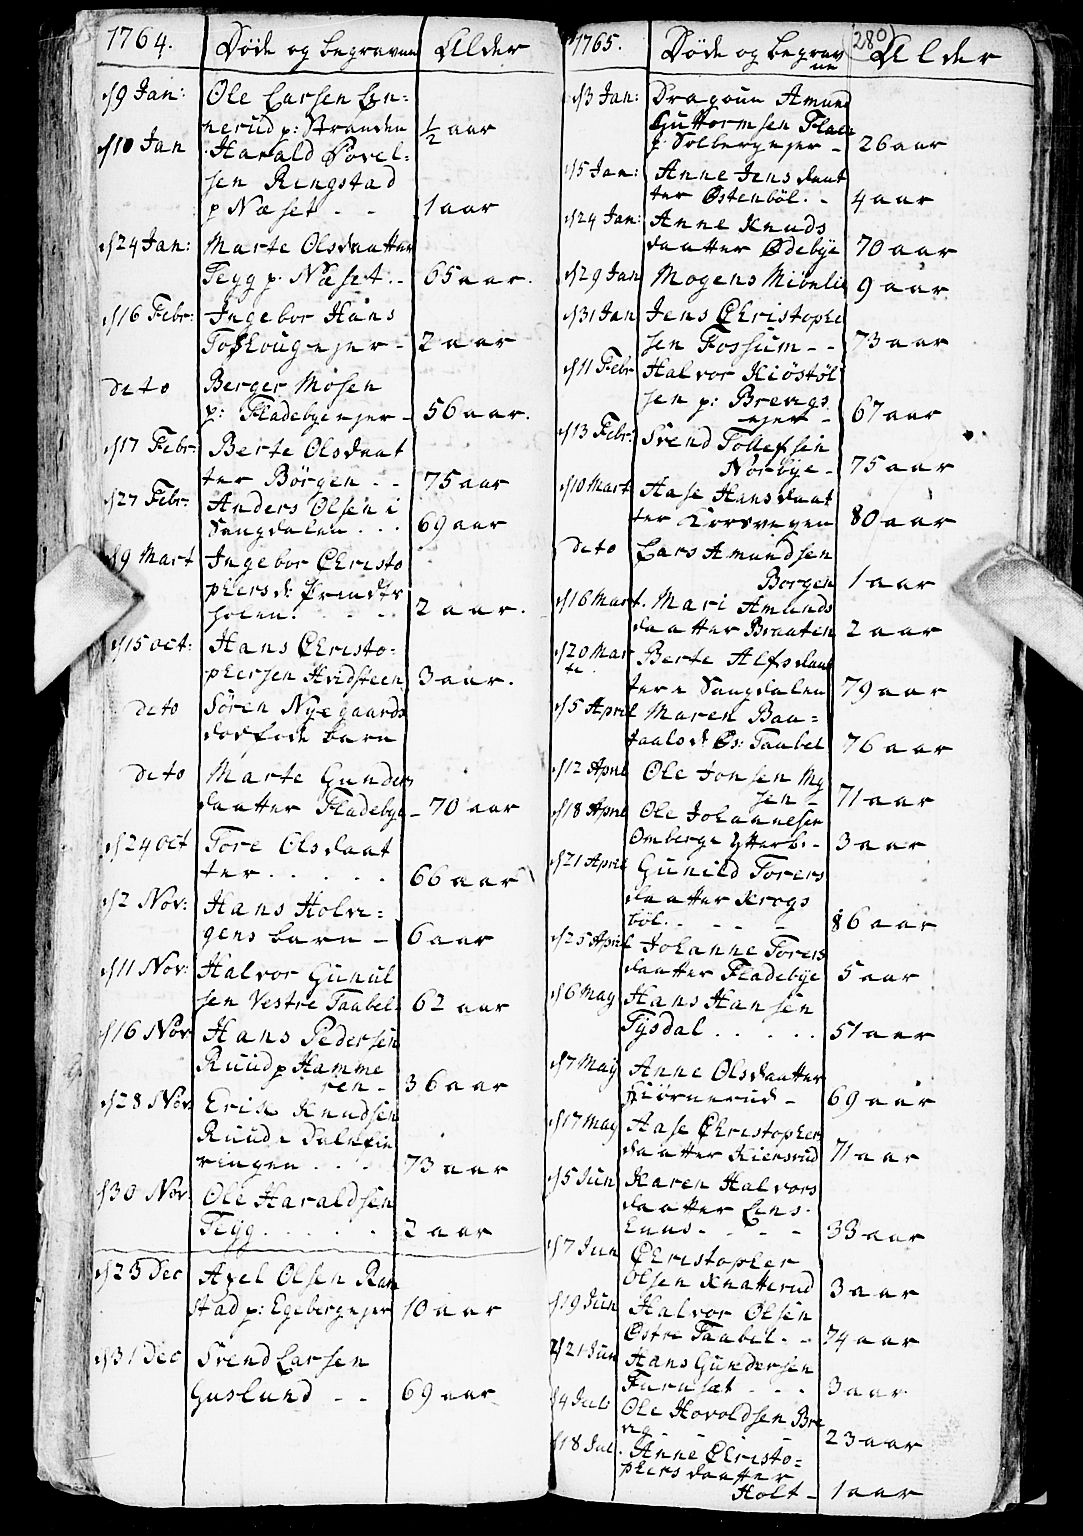 1764. Døde og begravne Alder
d/9 Jan: Ole Larsen Len=
nerud p: Stranden ½ aar
d/10 Jan Harald Povel=
sen Ringstad
p Næset - - 1 aar
d/24 Jan: Marte Olsdaatter
Tegg p. Næset. - 65 aar.
d/16 Febr: Ingebor Hans
ejer - 2 aar
deto Berger Mosen
p: Fladebye ejer - 56 aar.
d/17 Febr: Berte Olsdaat
ter Börgen - - 75 aar
d/27 Febr: Anders Olsen i
Sangdalen . . . 69 aar
d/9 Mart Ingebor Christo
phersd:
hoien. - - - 2 aar.
d/15 oct: Hans Christo=
phersen Hvidsteen 3 aar.
deto Sören Nyegaards
dödföde barn
deto Marte Gunders
daatter Fladebye - 70 aar
d/24 oct Tore Olsdaat
ter . . . . . 66 aar
d/2 Nov: Hans Holm=
gens barn - 6 aar
d/11 Nov: Halvor Gunul
sen Vestre Taabel. 62 aar
d/16 Nov Hans Pedersen
Ruud p Hamme
ren - 36 aar
d/28 Nov. Erik Knudsen
Ruud i
ringen . . . . 73 aar
d/30 Nov. Ole Haraldsen
Tegg . . . . . 2 aar
d/23 Dec Axel Olsen Ram
stad p: Egeberg ejer 10 aar
d/31 Dec Svend Larsen
Guslund - - 69 aar
1765. Døde og begrav
ne Alder
280
d/3 Jan: Dragoun Amund
Guttormsen Flate
p Solberg ejer - 26 aar
d/5 Jan: Anne Jens daat
ter Østenböl. - 4 aar
d/24 Jan: Anne Knuds
daatter Ødebÿe 70 aar
d/29 Jan Mogens Mibelie 9 aar
d/31 Jan Jens Christophe
sen Fossum - - 73 aar
d/11 Febr Halvor Kiöstöl
sen p: Brevigs
ejer - 67 aar
d/13 Febr: Svend Tollefsen
Norbÿe - 75 aar
d/10 Mart Aase Hansdaat
ter Korsvegen 80 aar
deto Lars Amundsen
Borgen 1 aar
d/16 Mart. Mari Amunds
daatter Braaten 2 aar
d/20 Mar
ti. Berte Alfsdaat
ter i Sangdalen 79 aar
d/5 April Maren Bau=
taals d. Øs: Taabel 76 aar
d/12 April Ole Jonsen My
sen - 71 aar
d/18 April Ole Johannesen
Omberge Ytterb. - 3 aar
d/21 April Gunild Torers
daatter Krogs
böl. - - - - 86 aar
d/25 April Johanne Torers
daatter Fladebÿe 5 aar
d/6 May Hans Hansen
Tÿsdal . . . . . 51 aar
d/7 May Anne Olsdaatter
Kiörnerud - 69 aar
d/17 May Aase Christopher
daatter Kiersrud 71 aar
d/5 Jun Karen Halvors
daatter Lens.
Enns. - - - 33 aar
d/7 Jun Christopher
Olsen Knatterud 3 aar
d/19 Jun Halvor Olsen
Østre Taabel. - - 74 aar
d/21 Jun Hans Gundersen
Furusæt - - - 3 aar
d/4 Juli Ole Hovoldsen Bre
vig - - - 23 aar
d/18 Jul. Anne Christo-
phersdaatter
Holt - 1 aar